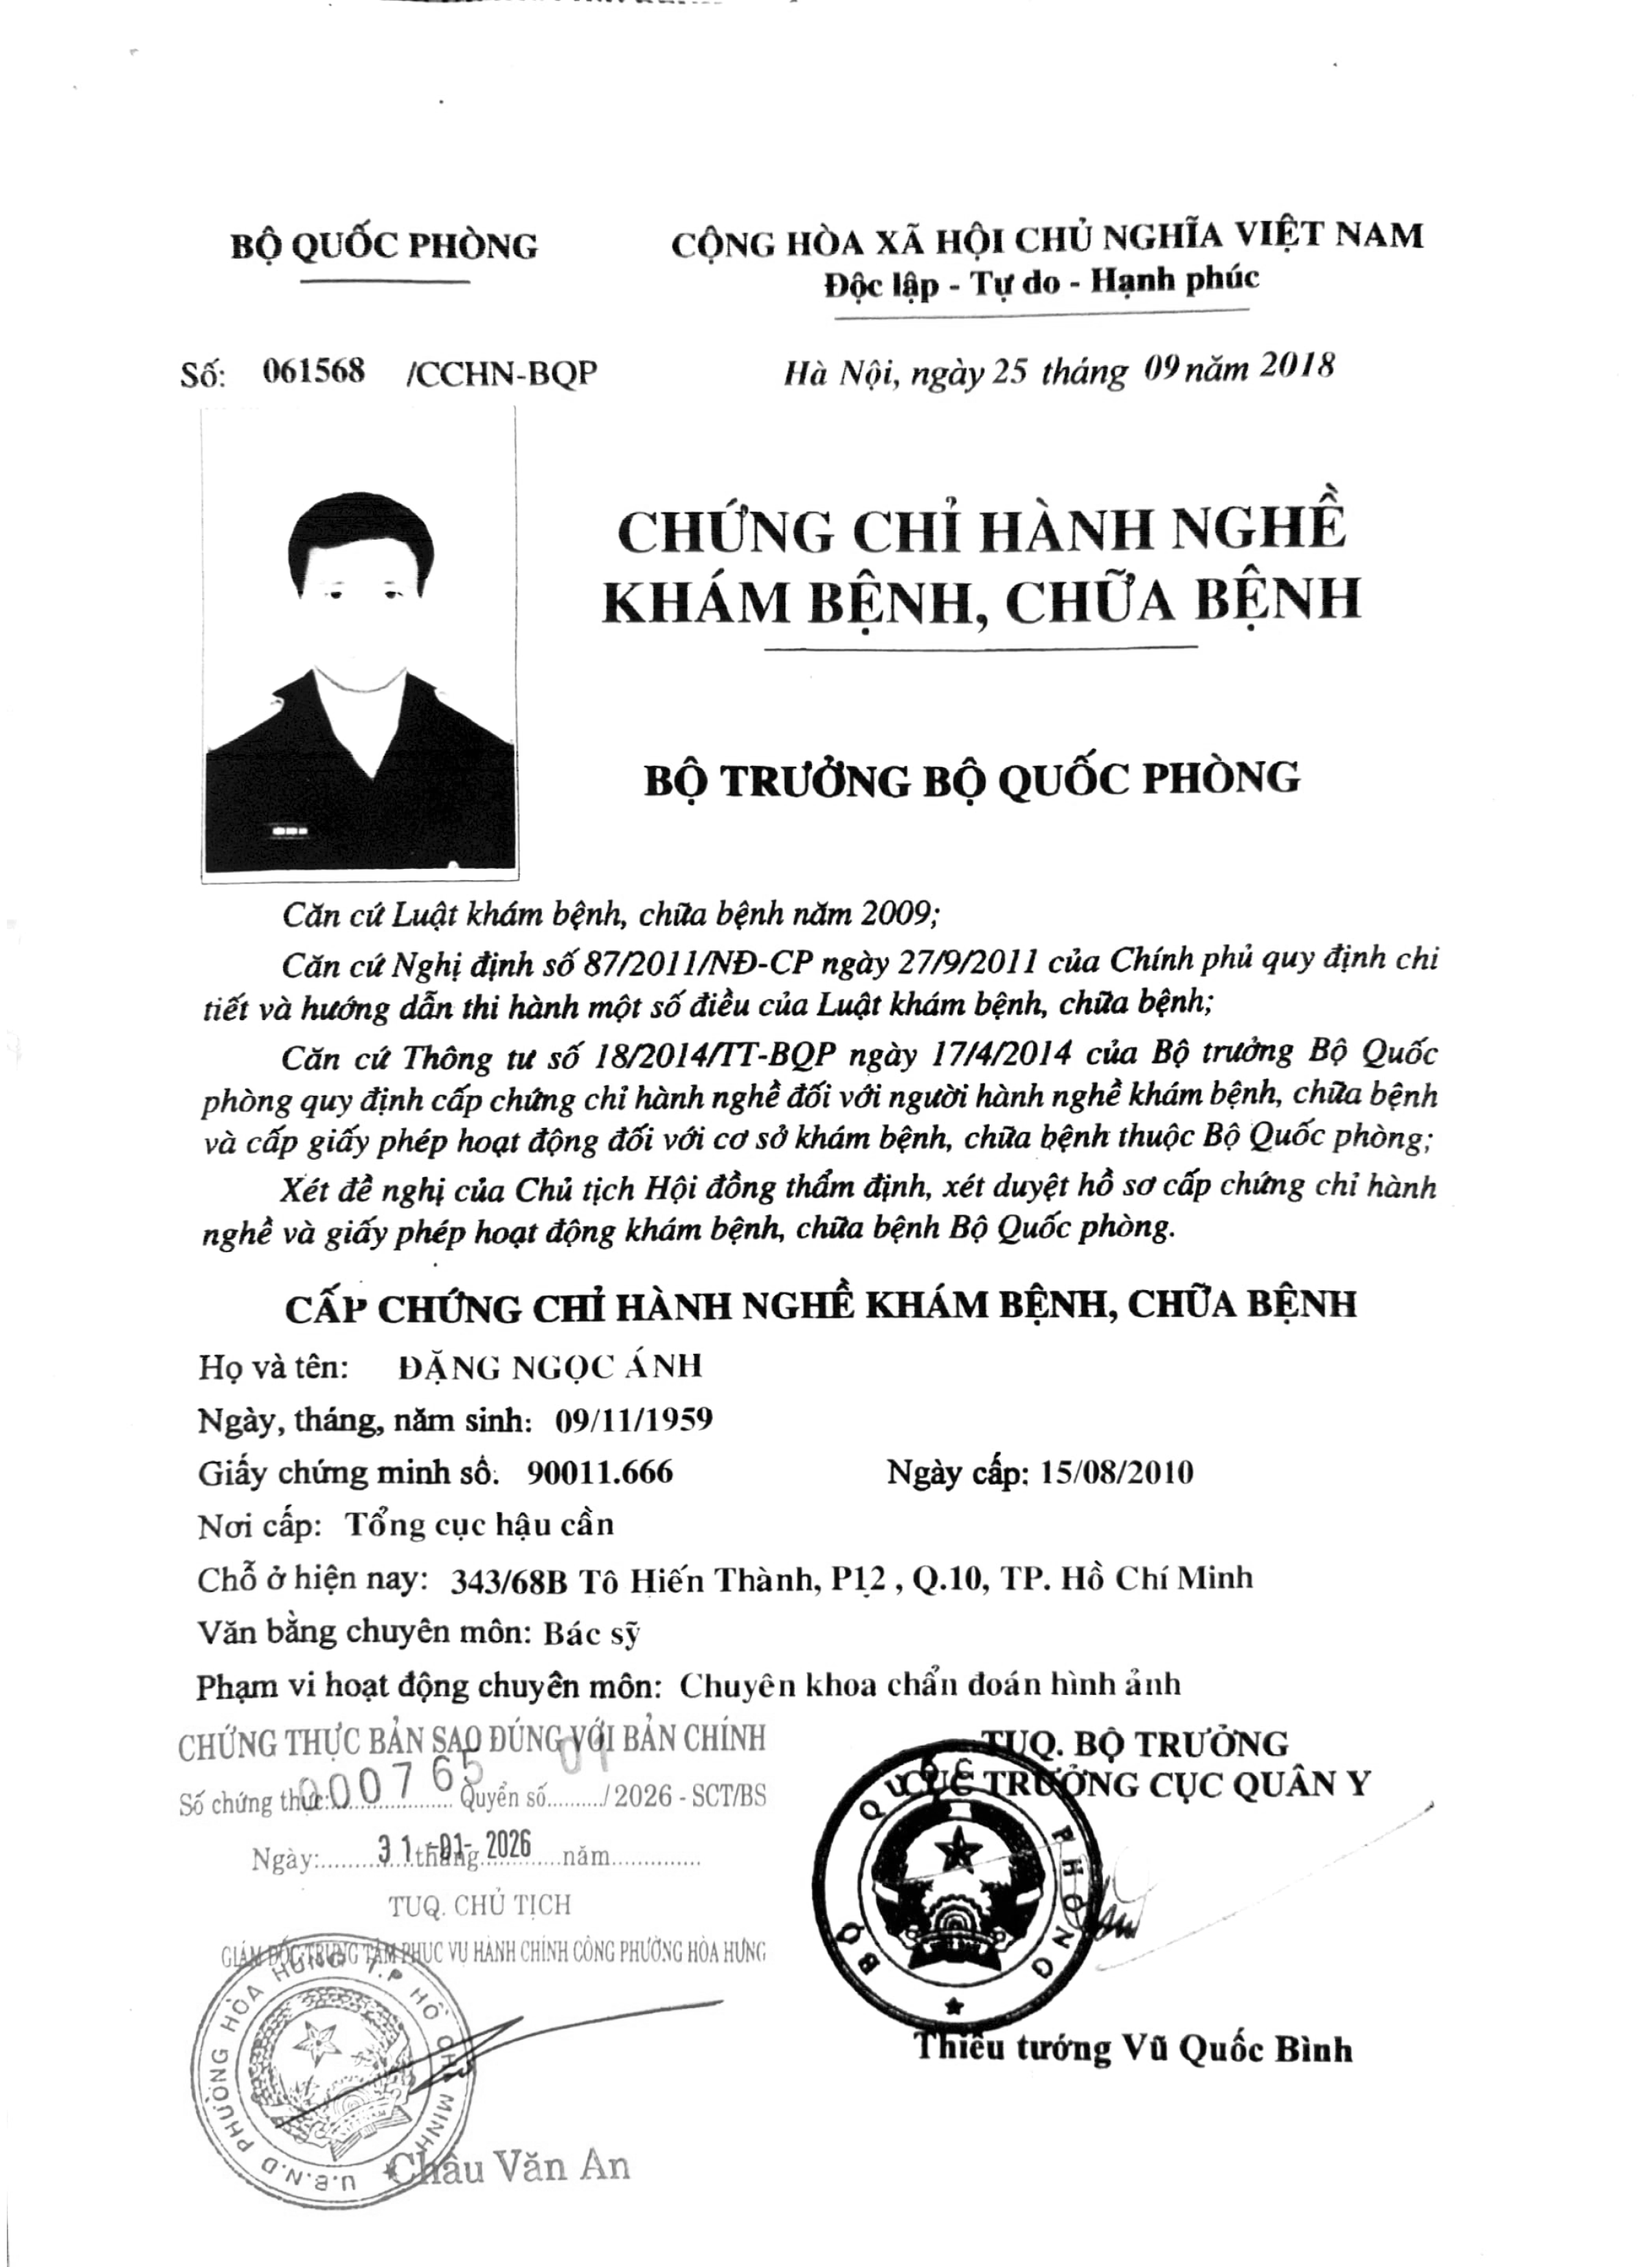 BỘ QUỐC PHÒNG
CỘNG HÒA XÃ HỘI CHỦ NGHĨA VIỆT NAM
Độc lập - Tự do - Hạnh phúc
Số: 061568 /CCHN-BQP
Hà Nội, ngày 25 tháng 09 năm 2018
CHỨNG CHỈ HÀNH NGHỀ
KHÁM BỆNH, CHỮA BỆNH
BỘ TRƯỞNG BỘ QUỐC PHÒNG
Căn cứ Luật khám bệnh, chữa bệnh năm 2009;
Căn cứ Nghị định số 87/2011/NĐ-CP ngày 27/9/2011 của Chính phủ quy định chi
tiết và hướng dẫn thi hành một số điều của Luật khám bệnh, chữa bệnh;
Căn cứ Thông tư số 18/2014/TT-BQP ngày 17/4/2014 của Bộ trưởng Bộ Quốc
phòng quy định cấp chứng chỉ hành nghề đối với người hành nghề khám bệnh, chữa bệnh
và cấp giấy phép hoạt động đối với cơ sở khám bệnh, chữa bệnh thuộc Bộ Quốc phòng;
Xét đề nghị của Chủ tịch Hội đồng thẩm định, xét duyệt hồ sơ cấp chứng chỉ hành
nghề và giấy phép hoạt động khám bệnh, chữa bệnh Bộ Quốc phòng.
CẤP CHỨNG CHỈ HÀNH NGHỀ KHÁM BỆNH, CHỮA BỆNH
Họ và tên: ĐẶNG NGỌC ÁNH
Ngày, tháng, năm sinh: 09/11/1959
Giấy chứng minh số. 90011.666 Ngày cấp: 15/08/2010
Nơi cấp: Tổng cục hậu cần
Chỗ ở hiện nay: 343/68B Tô Hiến Thành, P12 , Q.10, TP. Hồ Chí Minh
Văn bằng chuyên môn: Bác sỹ
Phạm vi hoạt động chuyên môn: Chuyên khoa chẩn đoán hình ảnh
CHỨNG THỰC BẢN SAO ĐÚNG VỚI BẢN CHÍNH
Số chứng thực: 000765 Quyển số 01 / 2026 - SCT/BS
Ngày: 31 tháng 01 2026 năm
TUQ. CHỦ TỊCH
GIÁM ĐỐC TRUNG TÂM PHỤC VỤ HÀNH CHÍNH CÔNG PHƯỜNG HÒA HƯNG
U.B.N.D PHƯỜNG HÒA HƯNG T.P HỒ CHÍ MINH
Châu Văn An
TUQ. BỘ TRƯỞNG
CỤC TRƯỞNG CỤC QUÂN Y
BỘ QUỐC PHÒNG
Thiếu tướng Vũ Quốc Bình